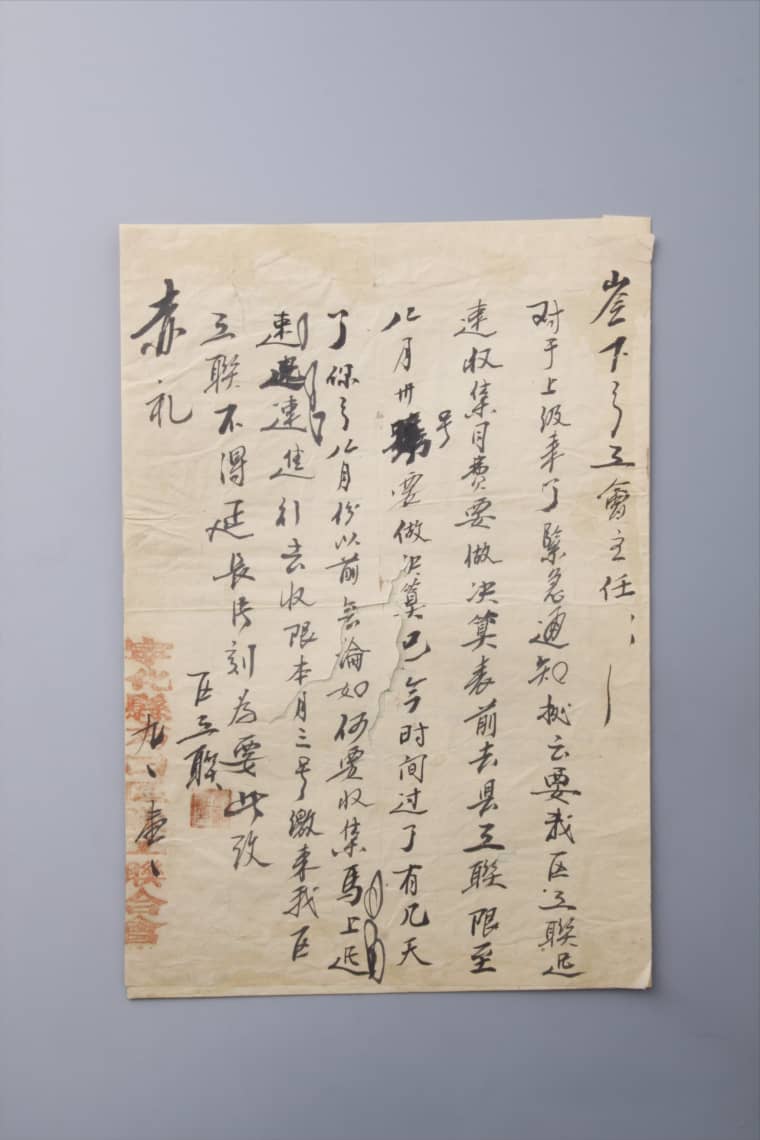 岑下乡工會主任：
对于上级来了緊急通知拠云要我区工联迅
速收集月費要做决算表前去县工联限至
八月卅号要做决算已今时间过了有几天
了你乡八月份以前無論如何要收集馬上迅
速速進行去收限本月三号繳来我区
工联不得延長片刻为要此致
赤礼
区工联
九、壹、
寧化縣 聯合會